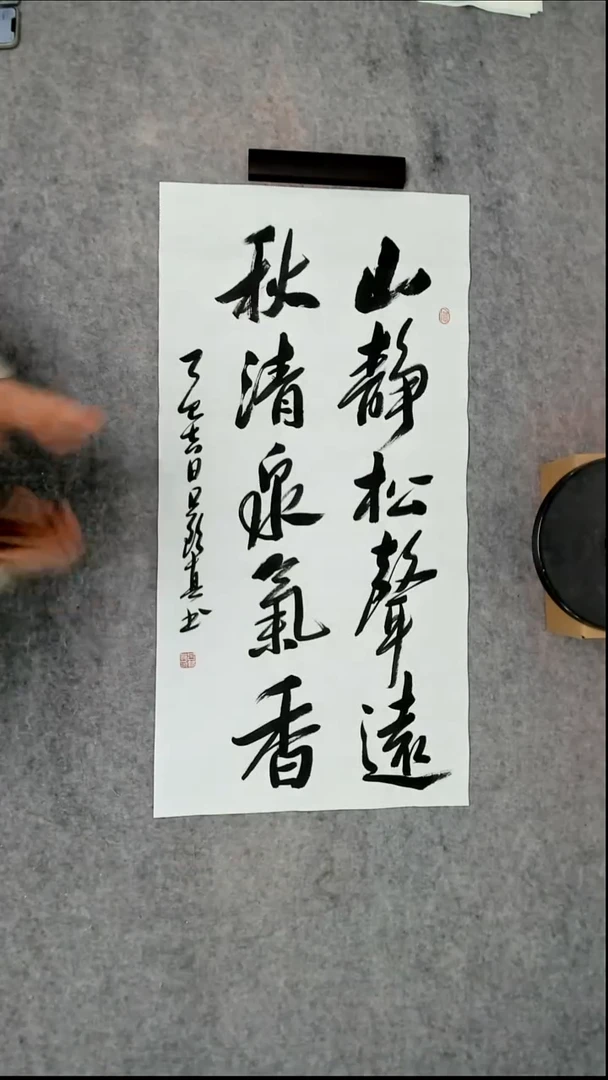 山靜松聲遠
秋清泉氣香
吉日
書